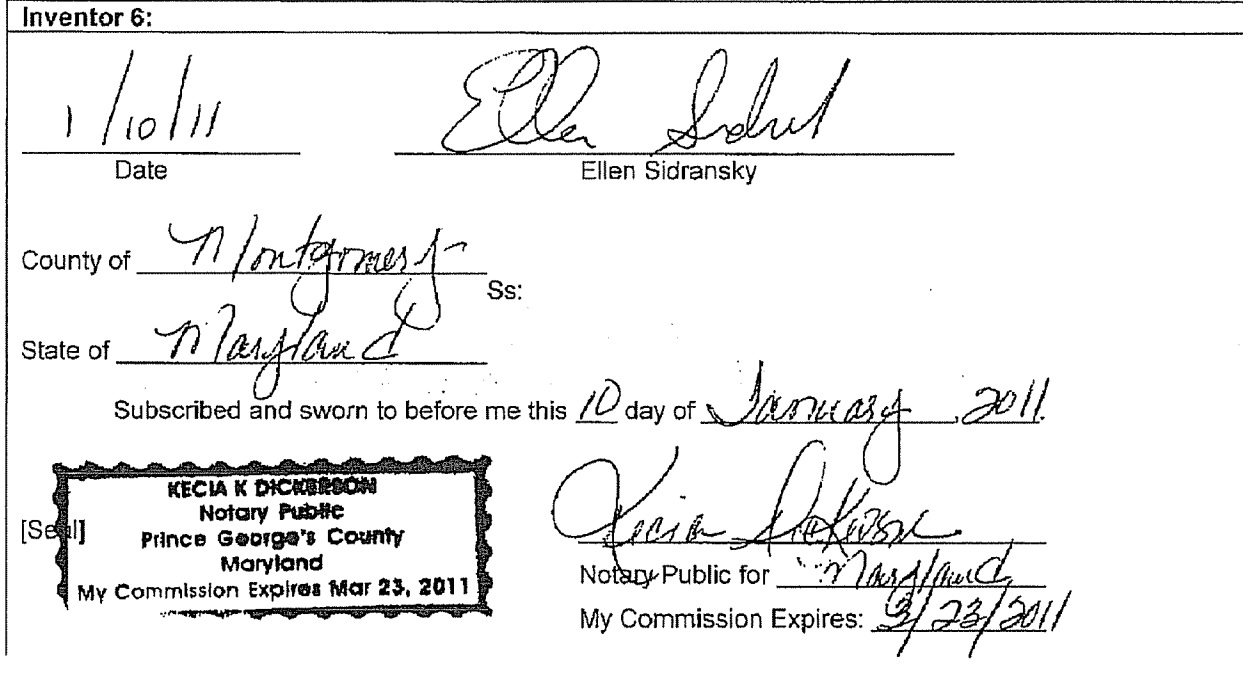 Inventor 6:
1/10/11 Ellen Sidransky
Date Ellen Sidransky
County of Montgomery
Ss:
State of Maryland
Subscribed and sworn to before me this 10 day of January, 2011.
[Seal]
KECIA K DICKERSON
Notary Public
Prince George's County
Maryland
My Commission Expires Mar 23, 2011
Kecia Dickerson
Notary Public for Maryland
My Commission Expires: 3/23/2011